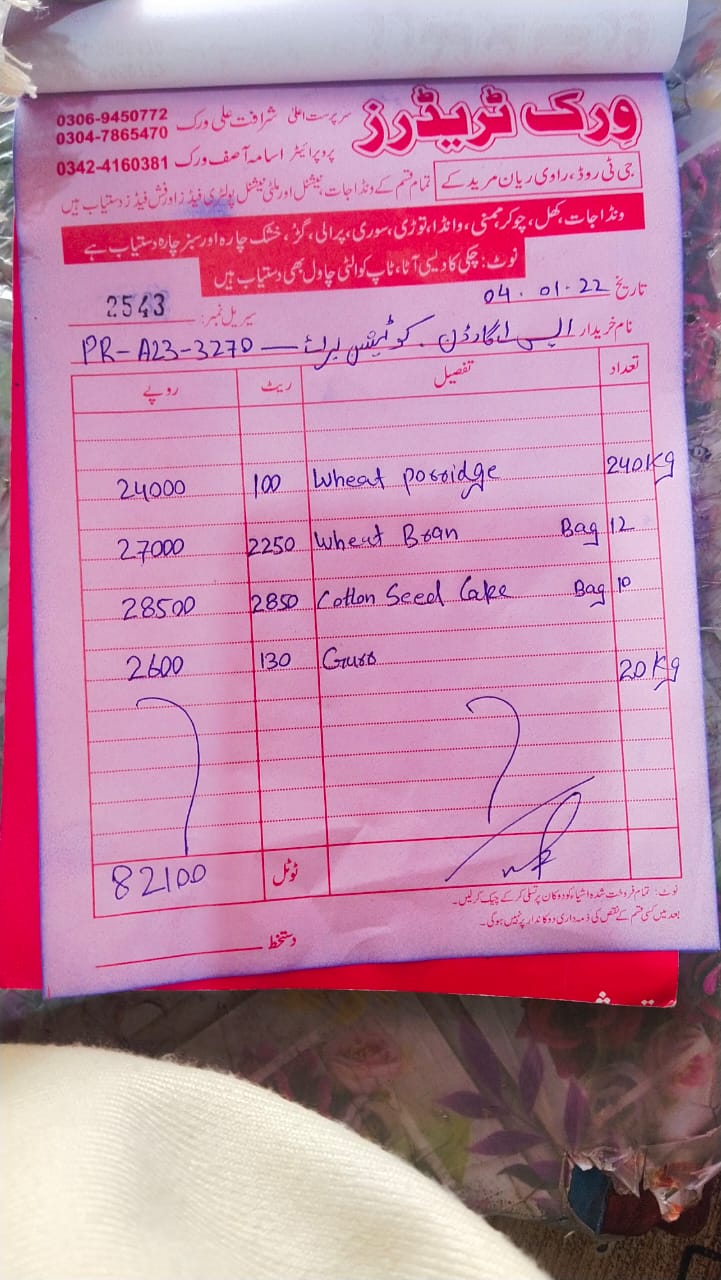 ورک ٹریڈرز
سرپرست اعلیٰ شرافت علی ورک 0306-9450772
0304-7865470
پروپرائیٹر اسامہ آصف ورک 0342-4160381
جی ٹی روڈ، راوی ریان مرید کے
تمام قسم کے ونڈا جات، نیشنل اور ملٹی نیشنل پولٹری فیڈز اور فش فیڈز دستیاب ہیں
ونڈا جات، کھل، چوکر، ممنی، وانڈا، توڑی، سوری، پرالی، گڑ، خشک چارہ اور سبز چارہ دستیاب ہے
نوٹ: چکی کا دیسی آٹا، ٹاپ کوالٹی چاول بھی دستیاب ہیں
تاریخ 04.01.22
سیریل نمبر: 2543
نام خریدار کوٹیشن برائے — PR-A23-3270
تعداد تفصیل ریٹ روپے
24000 100 Wheat Porridge 240Kg
27000 2250 Wheat Bran Bag 12
28500 2850 Cotton Seed Cake Bag 10
2600 130 Gurr 20Kg
82100 ٹوٹل
نوٹ: تمام فروخت شدہ اشیاء کو دوکان پر تسلی کر کے چیک کر لیں۔
بعد میں کسی قسم کے نقص کی ذمہ داری دوکاندار پر نہیں ہوگی۔
دستخط